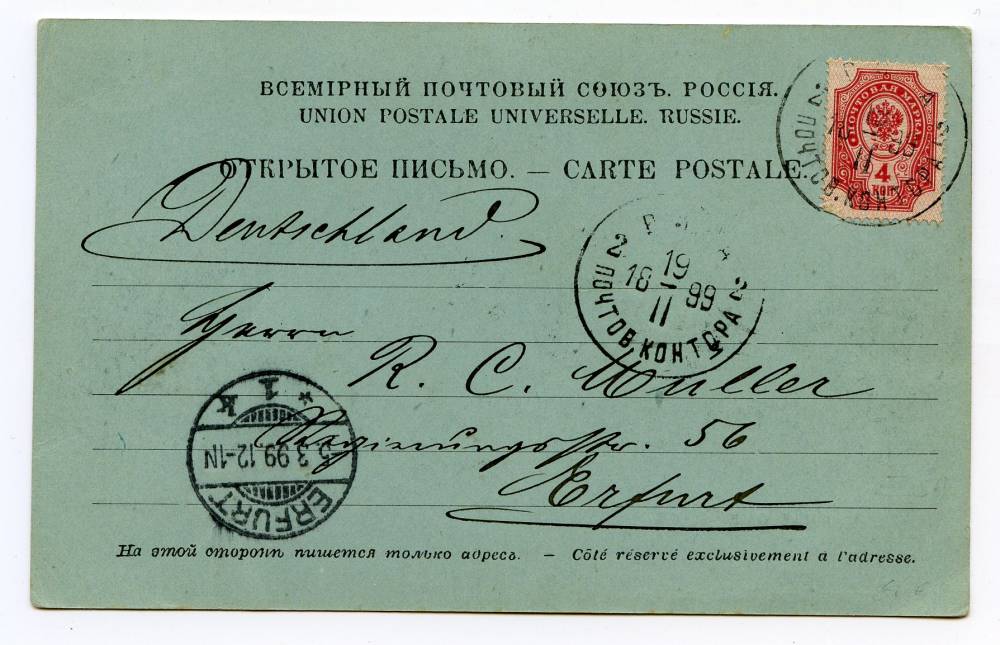 ВСЕМІРНЫЙ ПОЧТОВЫЙ СОЮЗЪ. РОССІЯ.
UNION POSTALE UNIVERSELLE. RUSSIE.
ОТКРЫТОЕ ПИСЬМО. — CARTE POSTALE.
ПОЧТОВАЯ МАРКА
4
КОП
Deutschland.
2 ПОЧТОВ. КОНТОРА 2
19
18 99
II
Herrn
R. C. Müller
Regierungsstr. 56
Erfurt
ERFURT
5 3.99.12-1N
* 1 k
На этой сторонѣ пишется только адресъ. — Côté réservé exclusivement à l'adresse.